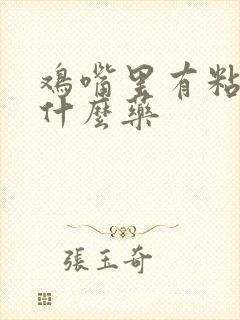 鸡嘴里有粘
什麼藥
張玉奇